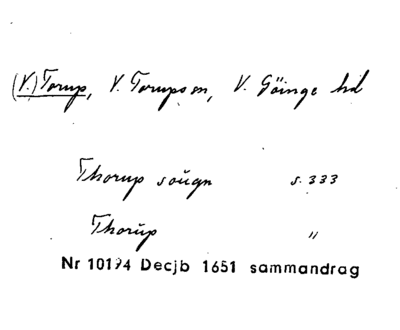 (V.) Torup, V. Torups sn, V. Göinge hd
Thorup sougn s. 333
Thorup "
Nr 10194 Decjb 1651 sammandrag